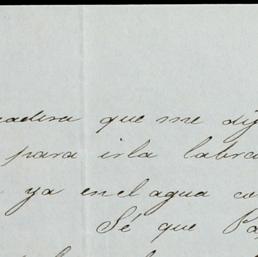 madera que me dig
para irla labra
ya en el agua co
Sé que Pa